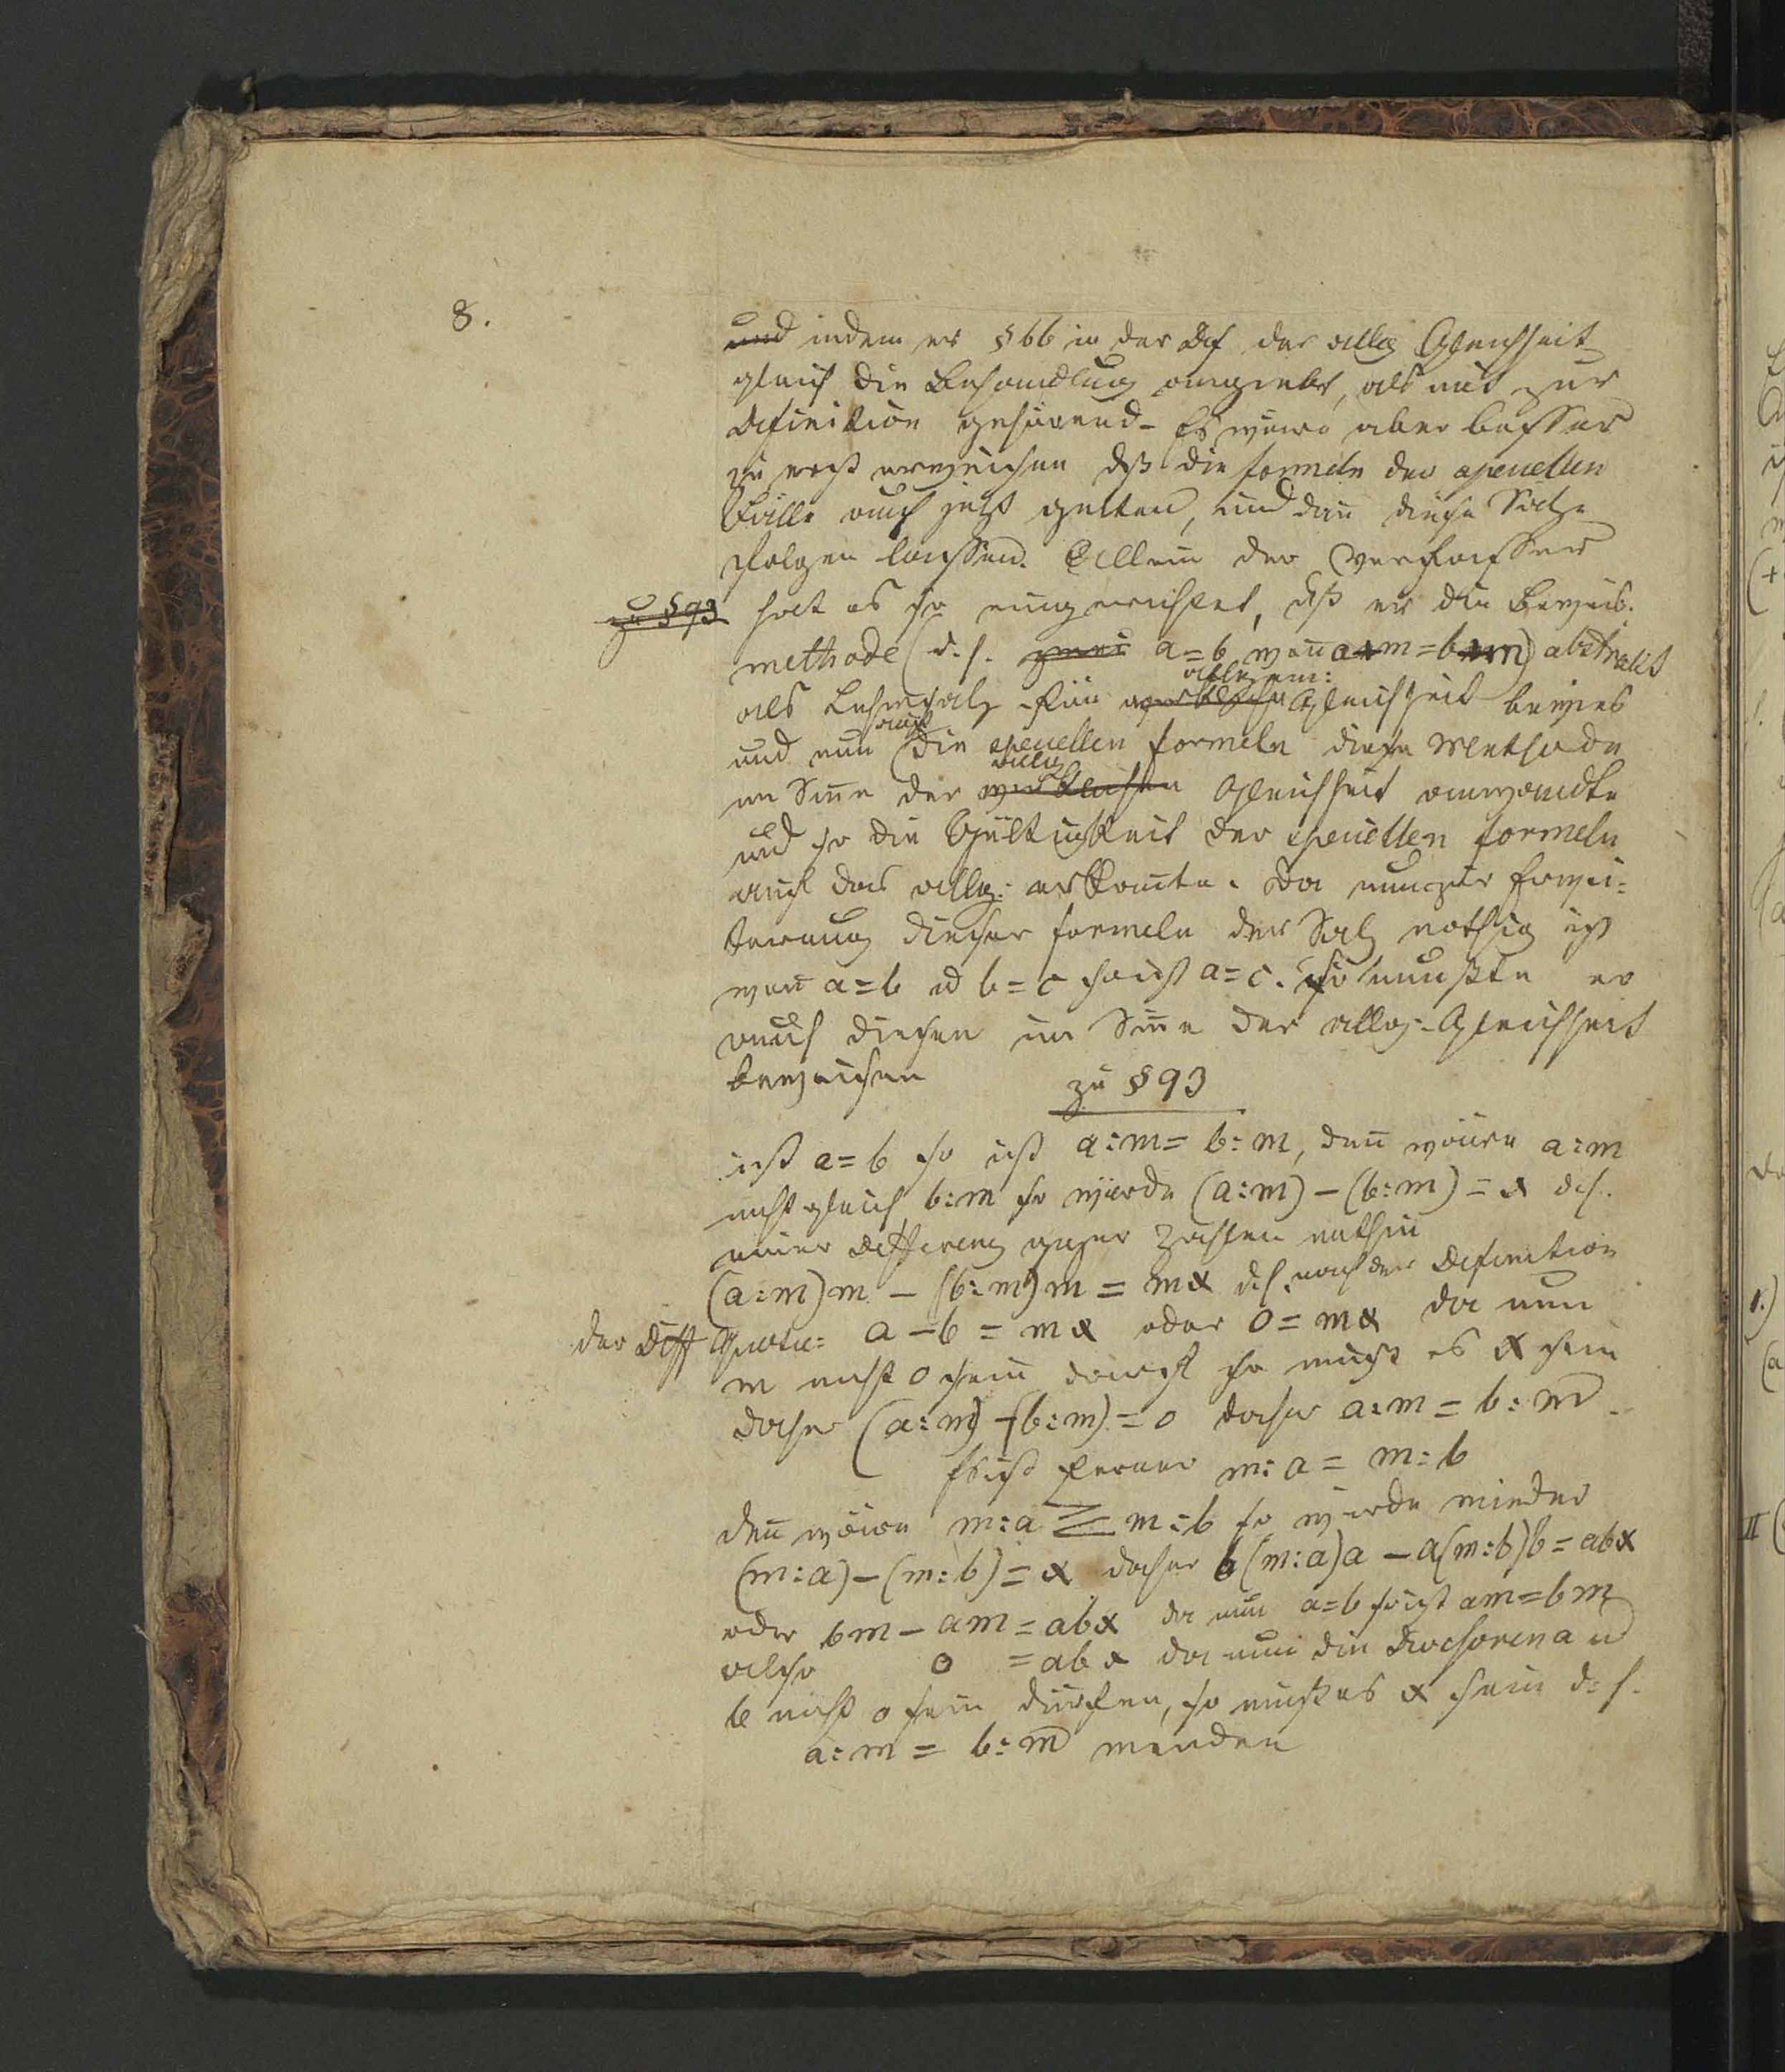 8.
und indem er § 66 in der Def der allg Gleichheit
gleich die Behandlug angiebt, als mit zur
Definition gehörend - Es wäre aber besser
zu erst erweisen dß die formeln der speciellen
Fälle auch jetzt gelten, und dan̄ diese Sätze
folgen lassen. Allein der Verfasser
zu § 93 hat es so eingerichtet, dß er die Beweis.
methode (d. h. a = b wen̄ a m = b m) abstract
allgem:
als Lehrsatz für wirkliche Gleichheit bewies
auf
und nun die speciellen formeln diese Methode
allg
im Sin̄e der wirklichen Gleichheit anwandte
und so die Gültigkeit der speciellen formeln
auch das allg: erkan̄te. Da nun zur Erwei=
terung dieser formeln der Satz nothig ist
wen̄ a = b u b = c so ist a = c. so mußte er
auch diesen im Sin̄e der allg: Gleichheit
beweisen
zu § 93
ist a = b so ist a:m = b:m, den̄ wäre a:m
nicht gleich b:m so würde (a:m) – (b:m) = x d.h.
einer Differenz ganzer Zahlen mithin
(a:m)m – (b:m)m = mx d.h. nach der Definition
der Diff Quotie: a – b = mx oder 0 = mx da nun
m nicht 0 sein darf so muß es x sein
daher (a:m) – (b:m) = 0 daher a:m = b:m.
Es ist ferner m:a = m:b
den̄ wäre m:a ≷ m:b so würde wieder
(m:a) – (m:b) = x daher b(m:a)a – a(m:b)b = abx
oder bm – am = abx da nun a = b so ist am = bm
also 0 = abx da nun die Divisoren a u
b nicht 0 sein dürfen, so muß es x sein d. h.
a:m = b:m werden